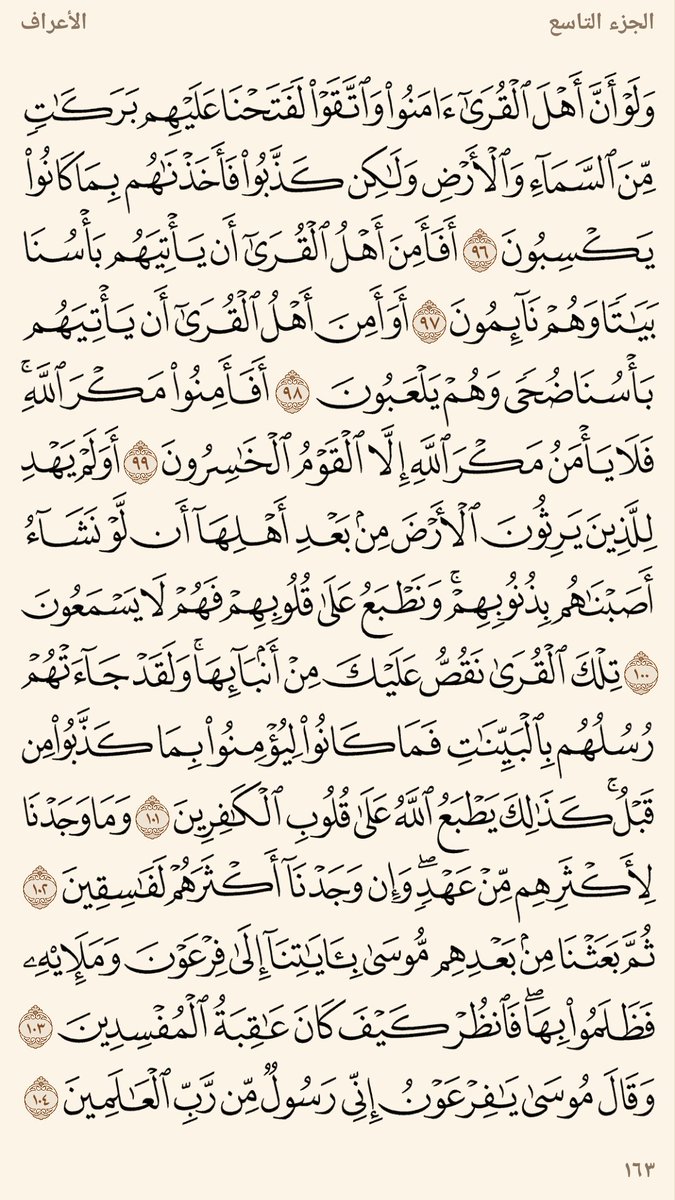 الجزء التاسع
الأعراف
وَلَوْ أَنَّ أَهْلَ ٱلْقُرَىٰٓ ءَامَنُوا۟ وَٱتَّقَوْا۟ لَفَتَحْنَا عَلَيْهِم بَرَكَٰتٍ
مِّنَ ٱلسَّمَآءِ وَٱلْأَرْضِ وَلَٰكِن كَذَّبُوا۟ فَأَخَذْنَٰهُم بِمَا كَانُوا۟
يَكْسِبُونَ ٩٦ أَفَأَمِنَ أَهْلُ ٱلْقُرَىٰٓ أَن يَأْتِيَهُم بَأْسُنَا
بَيَٰتًا وَهُمْ نَآئِمُونَ ٩٧ أَوَأَمِنَ أَهْلُ ٱلْقُرَىٰٓ أَن يَأْتِيَهُم
بَأْسُنَا ضُحًى وَهُمْ يَلْعَبُونَ ٩٨ أَفَأَمِنُوا۟ مَكْرَ ٱللَّهِ ۚ
فَلَا يَأْمَنُ مَكْرَ ٱللَّهِ إِلَّا ٱلْقَوْمُ ٱلْخَٰسِرُونَ ٩٩ أَوَلَمْ يَهْدِ
لِلَّذِينَ يَرِثُونَ ٱلْأَرْضَ مِنۢ بَعْدِ أَهْلِهَآ أَن لَّوْ نَشَآءُ
أَصَبْنَٰهُم بِذُنُوبِهِمْ ۚ وَنَطْبَعُ عَلَىٰ قُلُوبِهِمْ فَهُمْ لَا يَسْمَعُونَ
١٠٠ تِلْكَ ٱلْقُرَىٰ نَقُصُّ عَلَيْكَ مِنْ أَنۢبَآئِهَا ۚ وَلَقَدْ جَآءَتْهُمْ
رُسُلُهُم بِٱلْبَيِّنَٰتِ فَمَا كَانُوا۟ لِيُؤْمِنُوا۟ بِمَا كَذَّبُوا۟ مِن
قَبْلُ ۚ كَذَٰلِكَ يَطْبَعُ ٱللَّهُ عَلَىٰ قُلُوبِ ٱلْكَٰفِرِينَ ١٠١ وَمَا وَجَدْنَا
لِأَكْثَرِهِم مِّنْ عَهْدٍ ۖ وَإِن وَجَدْنَآ أَكْثَرَهُمْ لَفَٰسِقِينَ ١٠٢
ثُمَّ بَعَثْنَا مِنۢ بَعْدِهِم مُّوسَىٰ بِـَٔايَٰتِنَآ إِلَىٰ فِرْعَوْنَ وَمَلَإِي۟هِۦ
فَظَلَمُوا۟ بِهَا ۖ فَٱنظُرْ كَيْفَ كَانَ عَٰقِبَةُ ٱلْمُفْسِدِينَ ١٠٣
وَقَالَ مُوسَىٰ يَٰفِرْعَوْنُ إِنِّى رَسُولٌ مِّن رَّبِّ ٱلْعَٰلَمِينَ ١٠٤
١٦٣